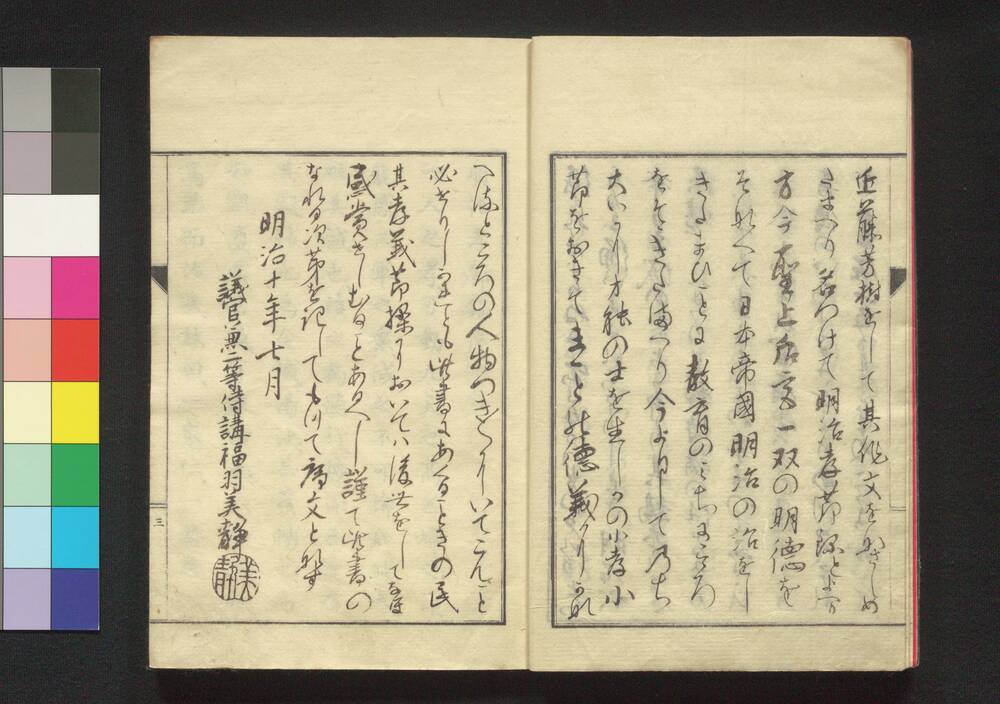 近藤芳樹をして其作文をなさしめ
たまへり名つけて明治孝節録と云
方今聖上后宮一双の明徳を
そなへて日本帝國明治の治をし
きたまひことに教育のみちに
をそゝきたまへり今よりして乃ち
大いなりし才能の士を生し小孝小
節をおきてまことの徳義
へるところの人物つき〳〵にいてこんこと
必せりしかれとも此書にあることきの民
其孝義節操においては後世をしてなほ
感賞せしむることあるへし謹て此書の
なれる次第を記してもつて序文となす
明治十年七月
議官兼二等侍講福羽美静
美静
三